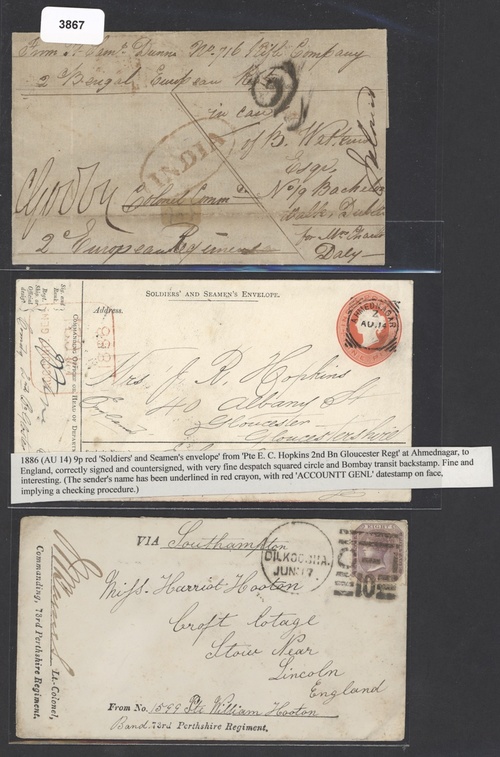 3867
From Dunne No. 716 Company
2 Bengal European Regt
in care
of B.
Esqr
INDIA
Ireland
Colonel Comm
No 9 Bachelor
Walk Dublin
2 European Regiment
for Mrs
Daly
SOLDIERS' AND SEAMEN'S ENVELOPE.
Address.
AHMEDNAGAR
AU. 14
Mrs. J. R. Hopkins
40 Albany St
Gloucester
Gloucestershire
England
COMMANDING OFFICER OR HEAD OF DEPARTM
1886 (AU 14) 9p red 'Soldiers' and Seamen's envelope' from 'Pte E. C. Hopkins 2nd Bn Gloucester Regt' at Ahmednagar, to
England, correctly signed and countersigned, with very fine despatch squared circle and Bombay transit backstamp. Fine and
interesting. (The sender's name has been underlined in red crayon, with red 'ACCOUNTT GENL' datestamp on face,
implying a checking procedure.)
VIA Southampton
DILKOOSHA.
JUN 17
EIGHT
10
Miss. Harriot Hooton
Croft Cotage
Stow Near
Lincoln
England
From No. 1599 Pte William Hooton
Band. 73rd Perthshire Regiment.
Lt.-Colonel,
Commanding, 73rd Perthshire Regiment.